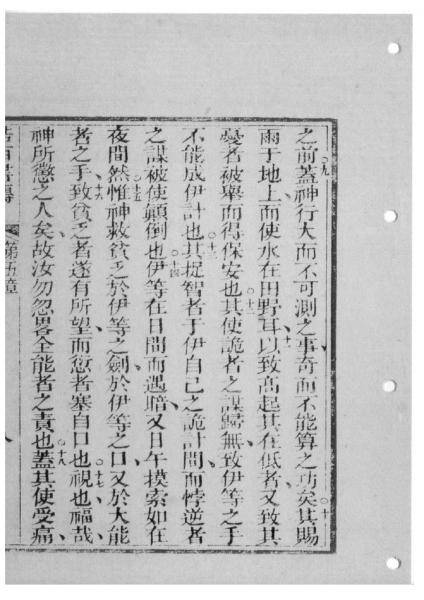 之前蓋神行大而不可測之事奇而不能算之功矣其賜
雨于地上而使水在田野耳以致高起其在低者又致其
憂者被舉而得保安也其使詭者之謀歸無致伊等之手
不能成伊計也其捉智者于伊自己之詭計間而悖逆者
之謀被使顛倒也伊等在日間而遇暗又日午摸索如在
夜間然惟神救貧乏於伊等之劍於伊等之口又於大能
者之手致貧乏者遂有所望而愆者塞自口也視也福哉
神所懲之人矣故汝勿忽畧全能者之責也蓋其使受痛
第五章